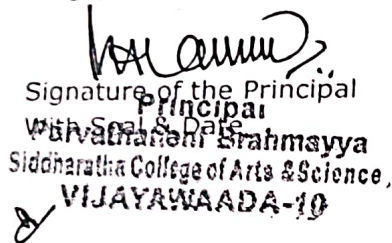 Signature of the Principal
Principal
with Seal & Date
Parvathaneni Brahmayya
Siddharatha College of Arts & Science,
VIJAYAWAADA-10